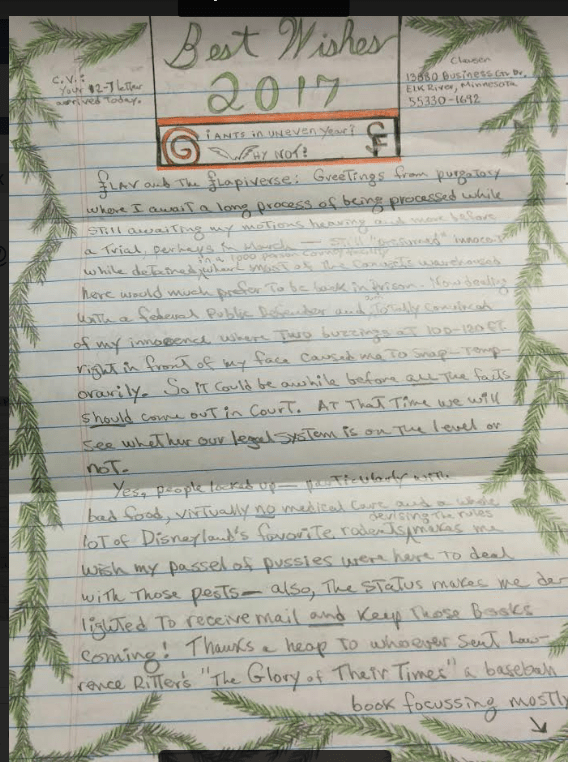 Best Wishes
2017
C.V.:
Your $2-J letter
arrived today.
Clausen
13880 Business Cn. Dr.
Elk River, Minnesota
55330-1692
GiANTS in UNEVEN Year?
WHY NOT?
FLAV and The Flapiverse: Greetings from purgatory
where I await a long process of being processed while
still awaiting my motions hearing and more before
a Trial, perhaps in March — still "presumed" innocent
in a 1000 person county facility
while detained where most of the convicts warehoused
here would much prefer to be back in prison. Now dealing
with a federal Public Defender and am Totally convinced
of my innocence where Two buzzings at 100-120 ft
right in front of my face caused me To snap - Temp-
orarily. So iT could be awhile before all The facts
should come out in Court. AT ThaT Time we will
see whether our legal system is on The level or
noT.
Yes, people locked up — particularly with
bad food, virtually no medical care and a whole
devising the rules
loT of Disneyland's favorite rodents makes me
wish my passel of pussies were here To deal
with Those pests — also, The STaTus makes me de-
lighted To receive mail and Keep Those Books
coming! Thanks a heap To whoever sent Law-
rence RiTTer's "The Glory of Their Times" a baseball
book focussing mostly